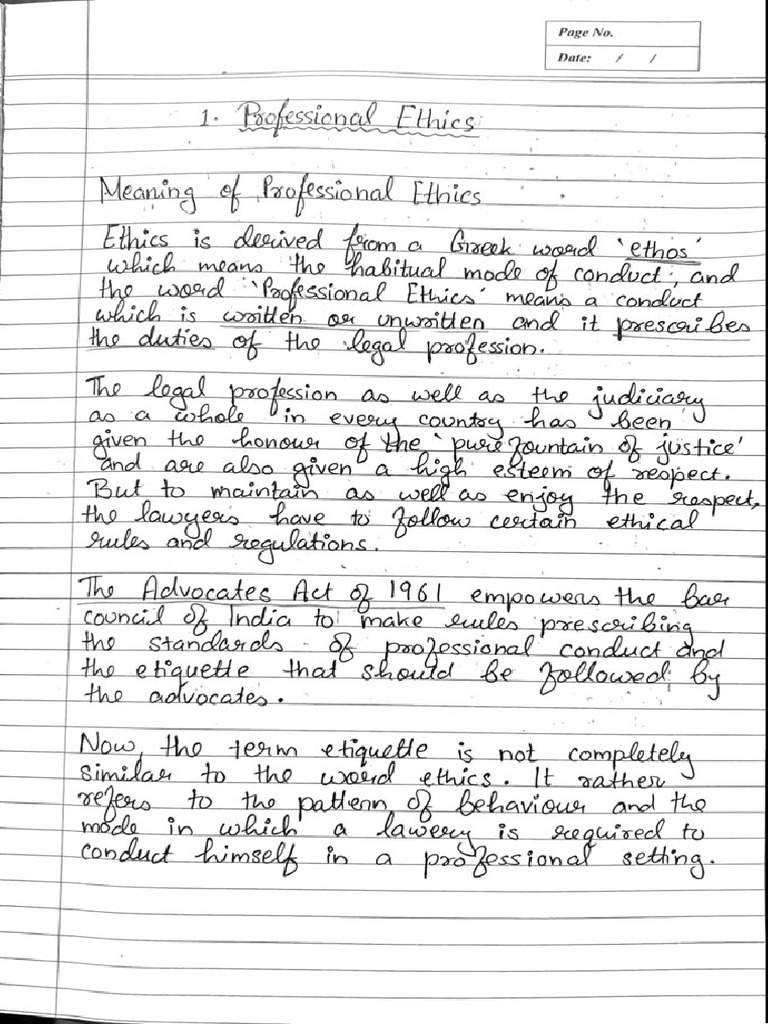 Page No.
Date: / /
1. Professional Ethics
Meaning of Professional Ethics
Ethics is derived from a Greek word 'ethos'
which means the habitual mode of conduct, and
the word 'Professional Ethics' means a conduct
which is written or unwritten and it prescribes
the duties of the legal profession.
The legal profession as well as the judiciary
as a whole in every country has been
given the honour of the 'pure fountain of justice'
and are also given a high esteem of respect.
But to maintain as well as enjoy the respect,
the lawyers have to follow certain ethical
rules and regulations.
The Advocates Act of 1961 empowers the bar
council of India to make rules prescribing
the standards of professional conduct and
the etiquette that should be followed by
the advocates.
Now, the term etiquette is not completely
similar to the word ethics. It rather
refers to the pattern of behaviour and the
mode in which a lawery is required to
conduct himself in a professional setting.